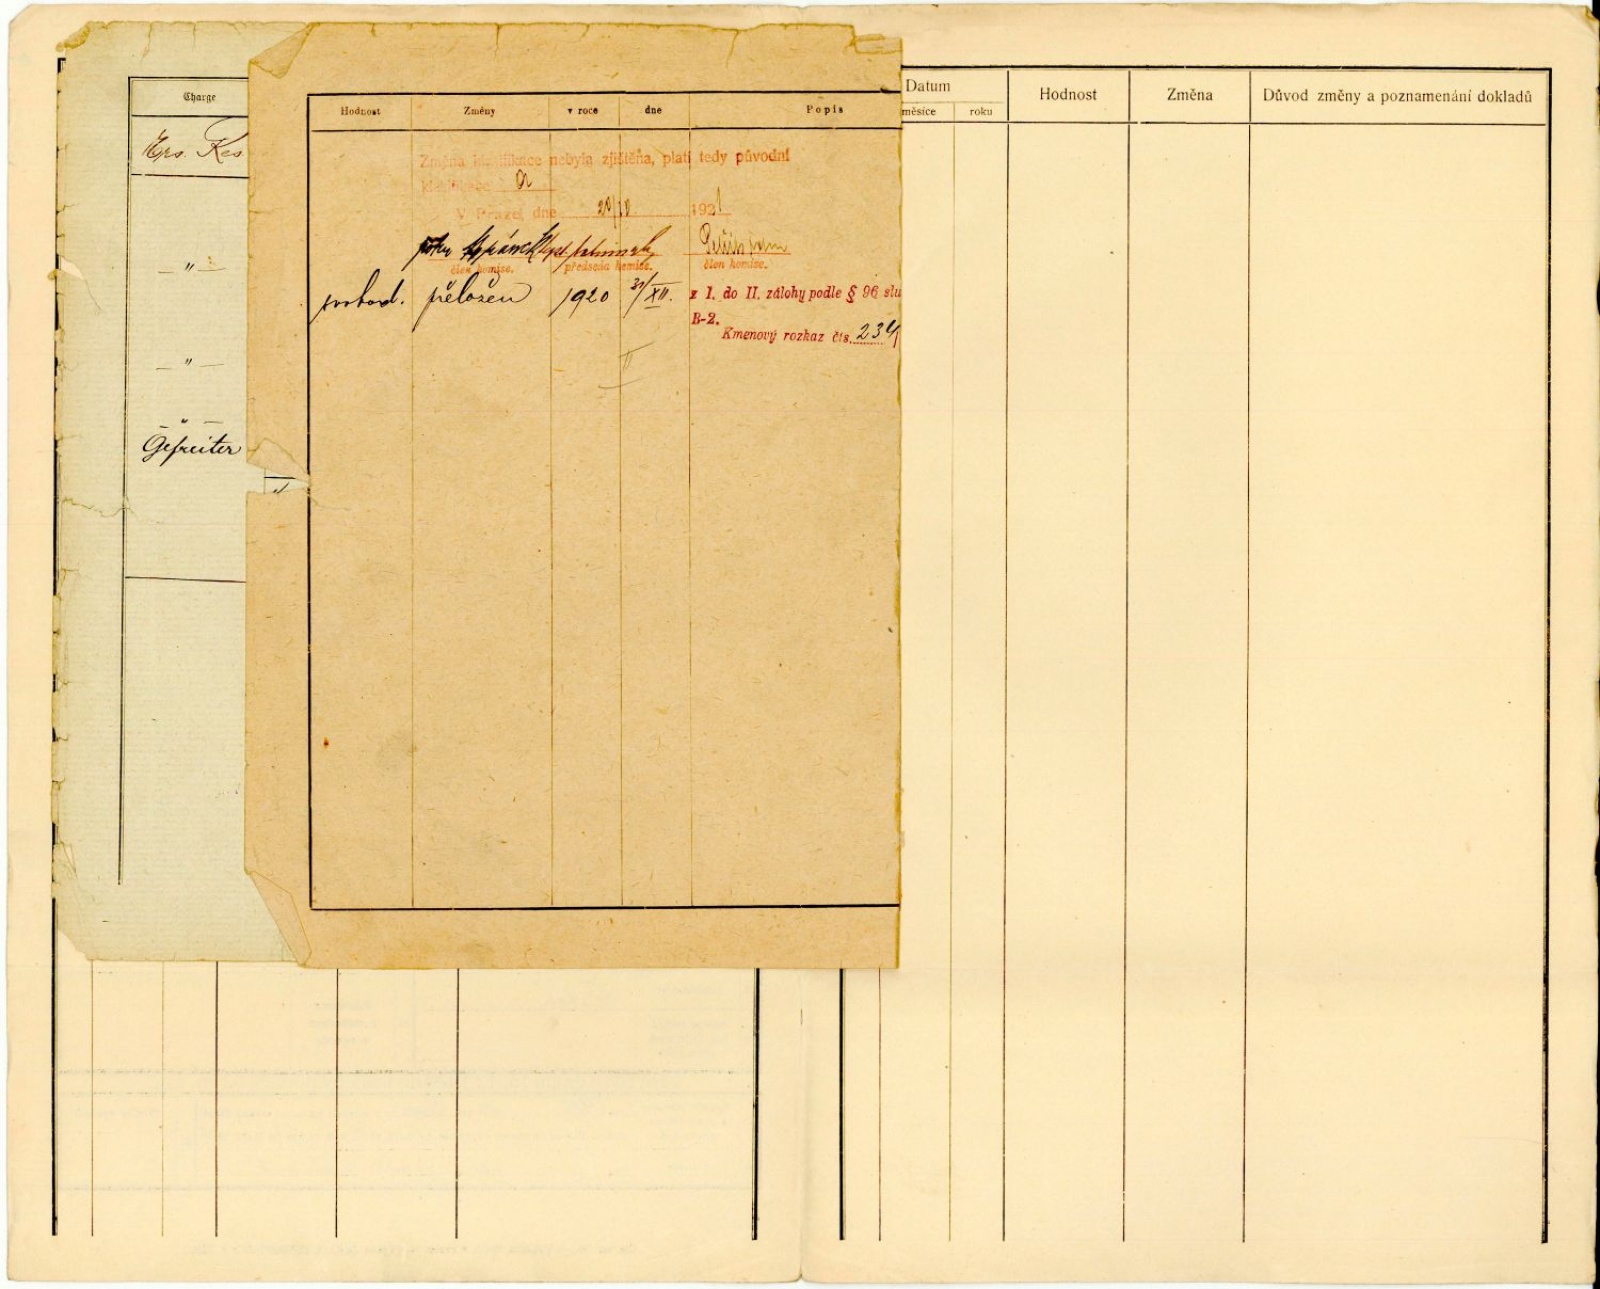 Charge
Ers. Res
„
„
„
Gefreiter
„
Hodnost Změny v roce dne Popis
Změna klasifikace nebyla zjištěna, platí tedy původní
klasifikace a
V Praze, dne 20/10 1921
člen komise. předseda komise. člen komise.
svobod. přeložen 1920 31/XII. z 1. do II. zálohy podle § 96 slu
B-2.
Kmenový rozkaz čís. 234/
II
Datum Hodnost Změna Důvod změny a poznamenání dokladů
měsíce roku